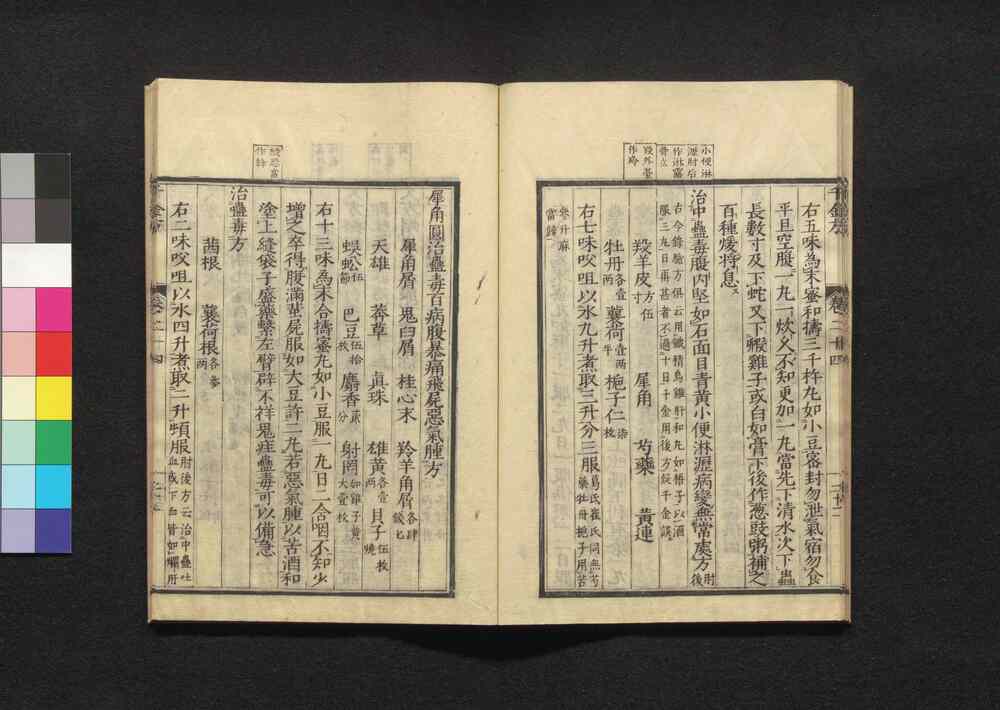 右五味為末蜜和擣三千杵丸如小豆密封勿泄氣宿勿食
平旦空腹一丸一炊久不知更加一丸當先下清水次下蟲
長數寸及下蛇又下蝦雞子或白如膏下後作葱豉粥補之
百種煖將息
治中蠱毒腹内堅如石面目青黃小便淋瀝病變無常處方肘後
古今錄驗方俱云用鐵精烏雞肝和丸如梧子以酒
服三丸日再甚者不過十日千金用後方錠千金誤
羖羊皮方伍寸 犀角 芍藥 黃連
牡丹各壹兩 蘘荷壹兩半 梔子仁柒枚
右七味㕮咀以水九升煮取三升分三服葛氏崔氏同無芍藥牡丹梔子用苦
參升麻
當歸
小便淋
瀝肘后
作淋露
骨立
羖外臺
作羚
千金方
卷二十四
二十二
犀角圓治蠱毒百病腹暴痛飛尸惡氣腫方
犀角屑 鬼臼屑 桂心末 羚羊角屑各肆錢匕
天雄 莽草 真珠 雄黃各壹兩 貝子伍枚燒
蜈蚣伍節 巴豆伍拾枚 麝香貳分 射罔如雞子黃大壹枚
右十三味為末合擣蜜丸如小豆服一丸日二含咽不知少
增之卒得腹滿蜚尸服如大豆許二丸若惡氣腫以苦酒和
塗上縫袋子盛藥繫左臂辟不祥鬼疰蠱毒可以備急
治蠱毒方
茜根 蘘荷根各參兩
右二味㕮咀以水四升煮取二升頓服肘後方云治中蠱吐血或下血皆如爛肝